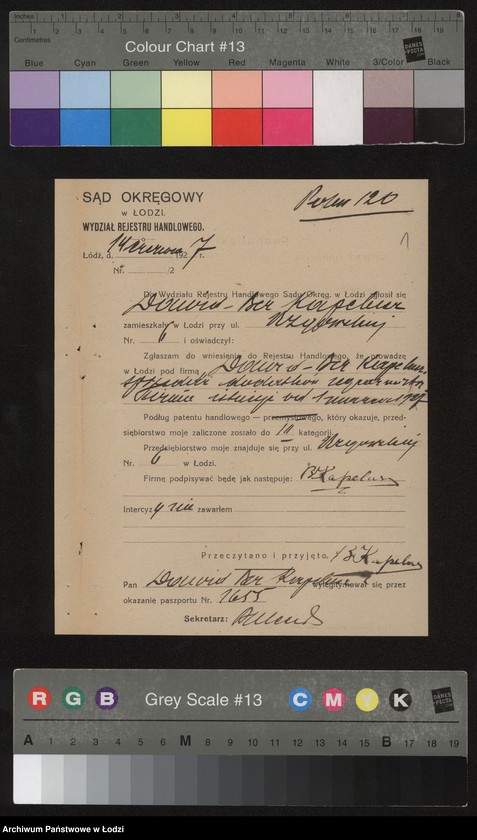 Inches 1 2 3 4 5 6 7 8
Centimetres 1 2 3 4 5 6 7 8 9 10 11 12 13 14 15 16 17 18 19
Colour Chart #13
DANES-PICTA
Blue Cyan Green Yellow Red Magenta White 3/Color Black
SĄD OKRĘGOWY
w ŁODZI.
WYDZIAŁ REJESTRU HANDLOWEGO.
120
1
Łódź, d. 14 czerwca 1927 r.
Nr. /2
Do Wydziału Rejestru Handlowego Sądu Okręg. w Łodzi zgłosił się
Dawid-Ber Kapelusz
zamieszkały w Łodzi przy ul. Rzgowskiej
Nr. 6 i oświadczył:
Zgłaszam do wniesienia do Rejestru Handlowego, że prowadzę
w Łodzi pod firmą Dawid-Ber Kapelusz
Firma istnieje od 1 1927
Podług patentu handlowego — przemysłowego, który okazuje, przed-
siębiorstwo moje zaliczone zostało do III kategorji.
Przedsiębiorstwo moje znajduje się przy ul. Rzgowskiej
Nr. 6 w Łodzi.
Firmę podpisywać będę jak następuje: B Kapelusz
Intercyzy nie zawarłem
Przeczytano i przyjęto. B Kapelusz
Pan Dawid Ber Kapelusz wylegitymował się przez
okazanie paszportu Nr. 1655
Sekretarz:
R G B Grey Scale #13 C M Y K
DANES-PICTA
A 1 2 3 4 5 6 M 8 9 10 11 12 13 14 15 B 17 18 19
Archiwum Państwowe w Łodzi